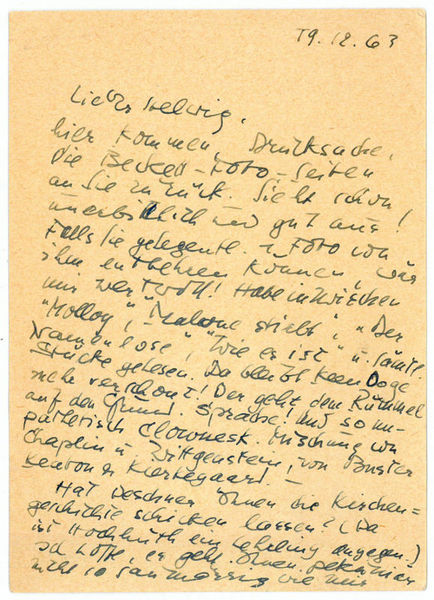 19.12.63
Lieber Helwig,
hier kommen, Drucksache,
die Beckett-Foto-Seiten
an Sie zurück. Sieht schon
unerbittlich und gut aus!
Falls Sie gelegentl. 1 Foto von
ihm entbehren können, wär
mir wertvoll! Habe inzwischen
"Molloy", "Malone stirbt", "Der
Namenlose", "Wie es ist" u. sämtl.
Stücke gelesen. Da bleibt keen Doge
mehr verschont! Der geht dem Rummel
auf den Grund. Sprache! Und so un-
pathetisch clownesk. Mischung von
Chaplin u. Wittgenstein, von Buster
Keaton u. Kierkegaard. –
Hat Deschner Ihnen die Kirchen-
geschichte schicken lassen? (Da
ist Hochhuth ein Lehrling dagegen)
Ich hoffe, es geht Ihnen pekuniär
nicht so saumässig wie mir